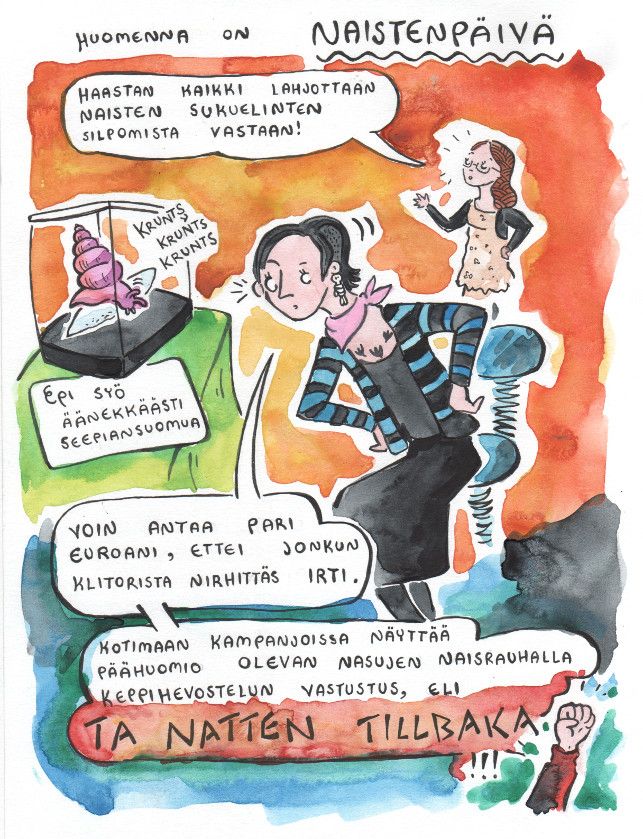 HUOMENNA ON NAISTENPÄIVÄ
HAASTAN KAIKKI LAHJOTTAAN
NAISTEN SUKUELINTEN
SILPOMISTA VASTAAN!
KRUNTS
KRUNTS
KRUNTS
EPI SYÖ
ÄÄNEKKÄÄSTI
SEEPIANSUOMUA
VOIN ANTAA PARI
EUROANI, ETTEI JONKUN
KLITORISTA NIRHITTÄS IRTI.
KOTIMAAN KAMPANJOISSA NÄYTTÄÄ
PÄÄHUOMIO OLEVAN NASUJEN NAISRAUHALLA
KEPPIHEVOSTELUN VASTUSTUS, ELI
TA NATTEN TILLBAKA
!!!